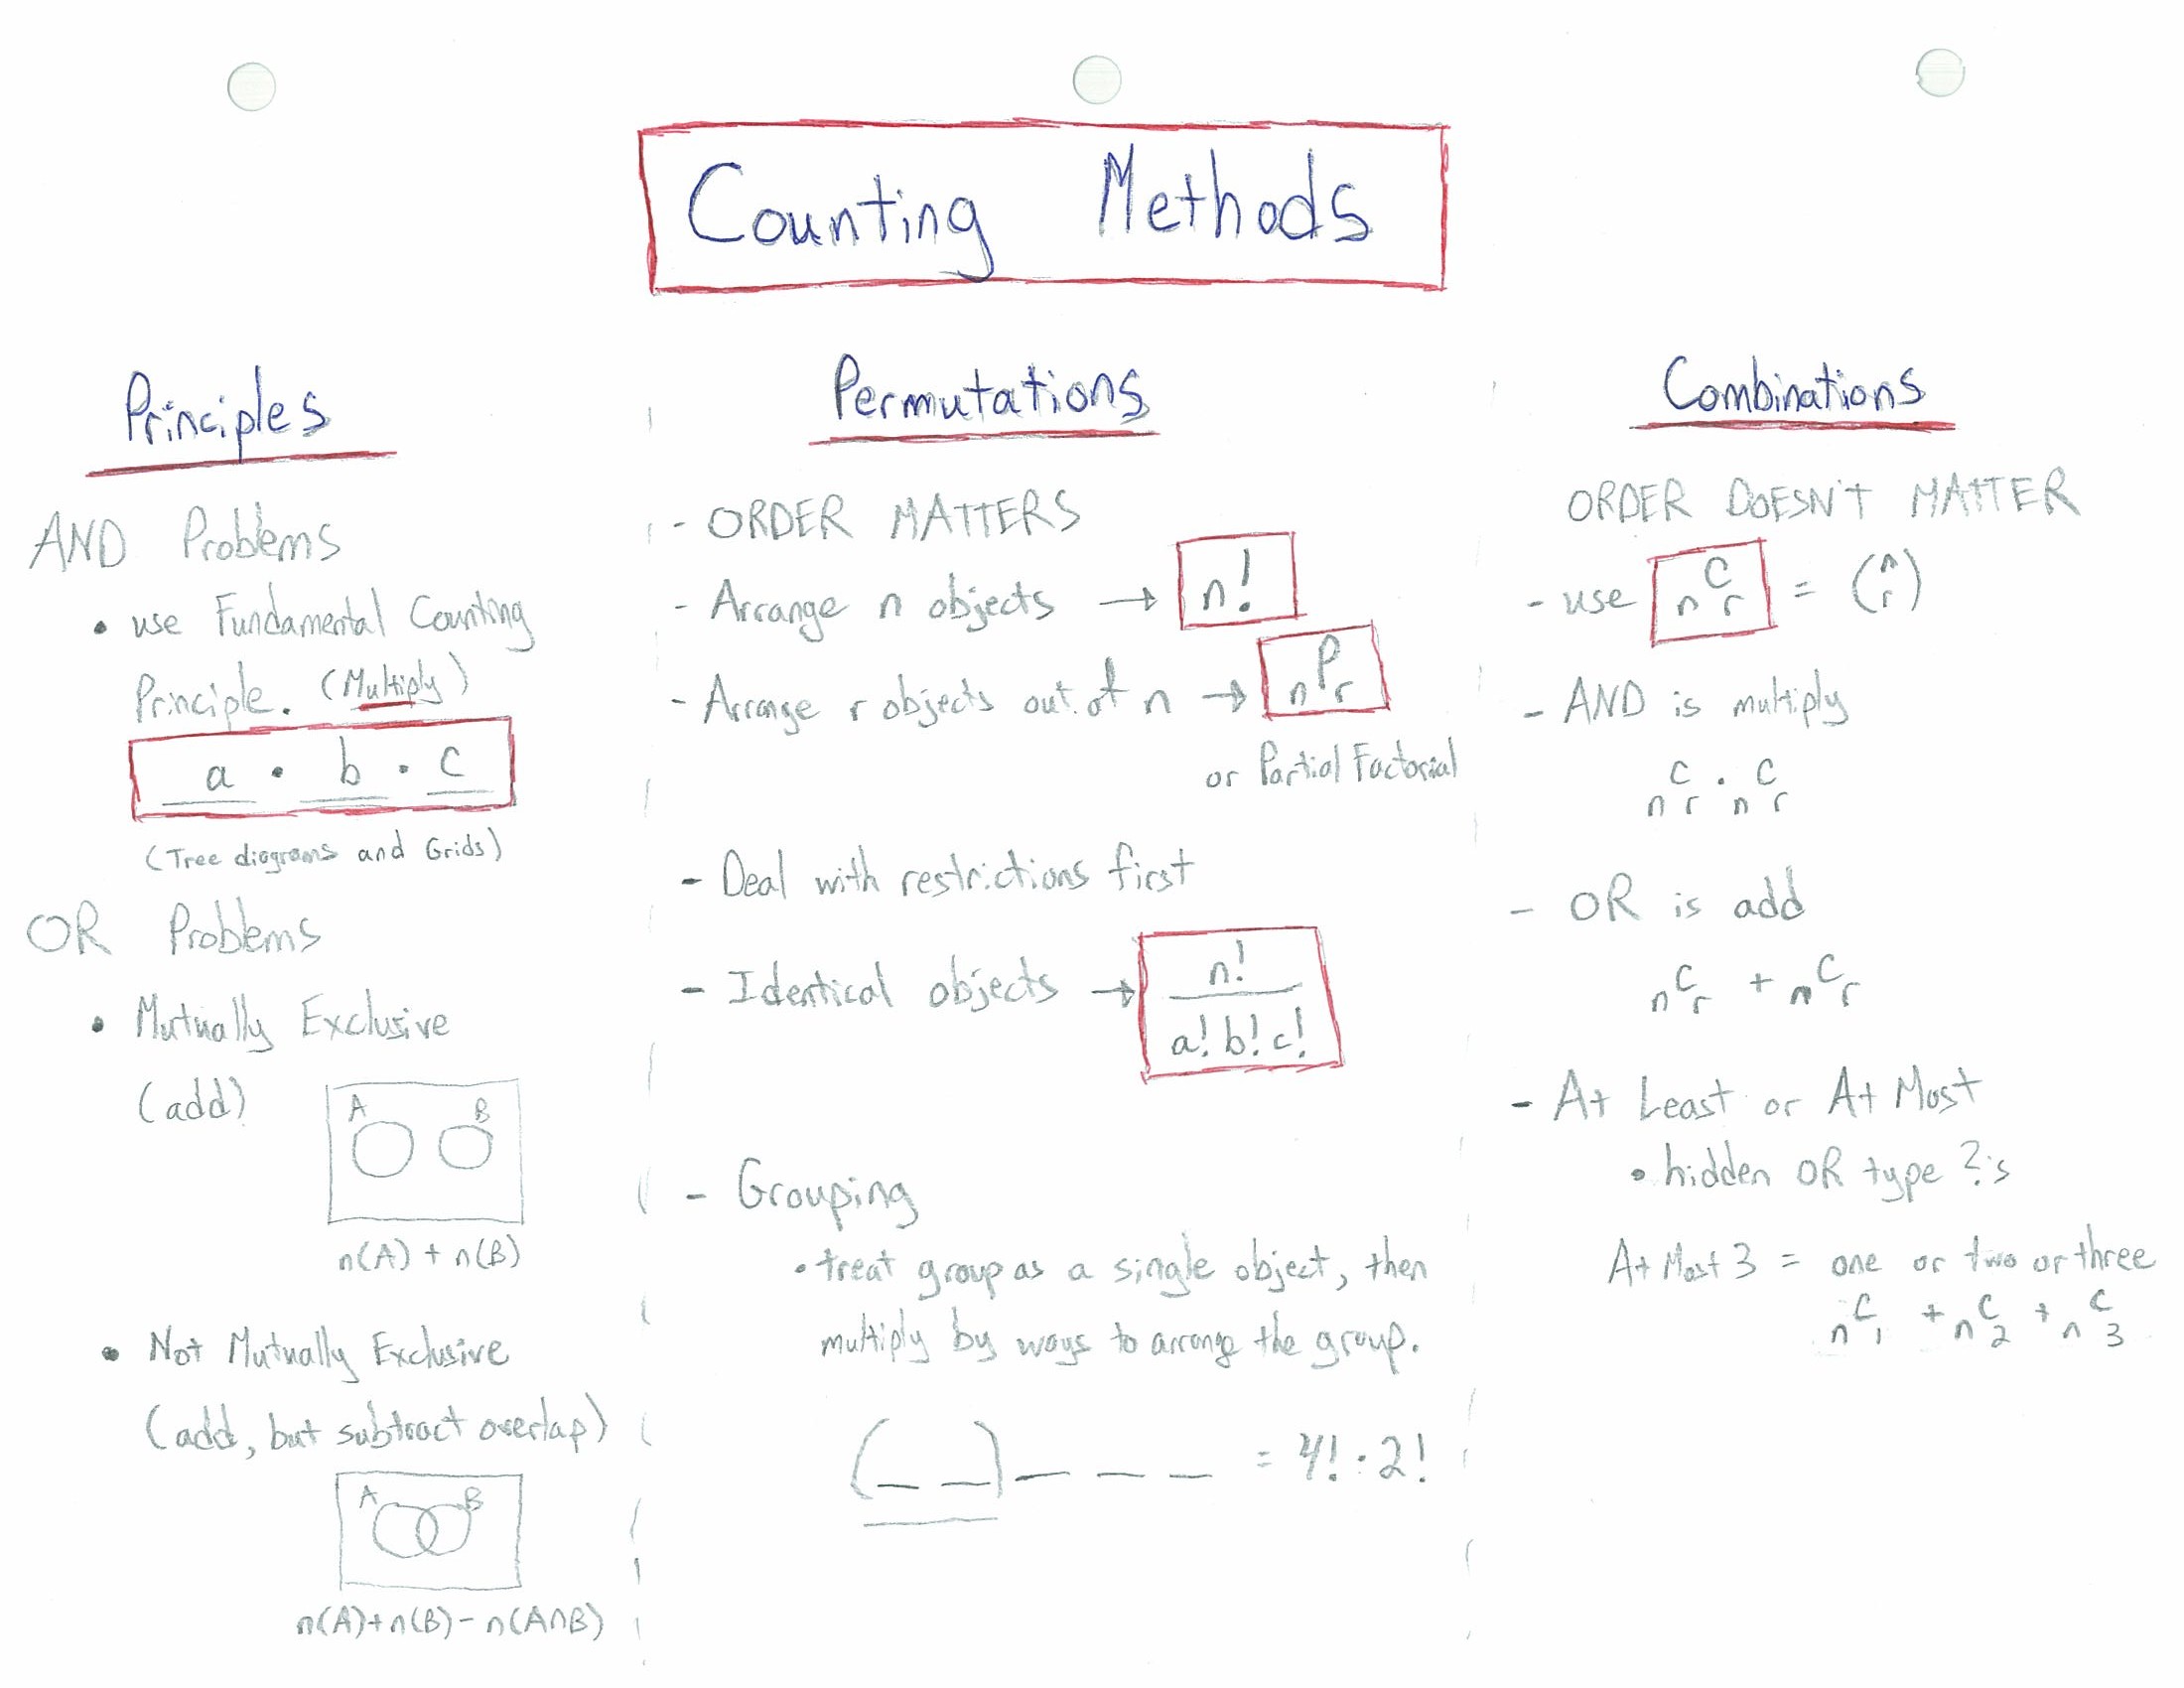 Counting Methods
Principles
AND Problems
• use Fundamental Counting
Principle. (Multiply)
a • b • c
(Tree diagrams and Grids)
OR Problems
• Mutually Exclusive
(add)
A B
n(A) + n(B)
• Not Mutually Exclusive
(add, but subtract overlap)
A B
n(A)+n(B)- n(A∩B)
Permutations
- ORDER MATTERS
- Arrange n objects → n!
- Arrange r objects out of n → nPr
or Partial Factorial
- Deal with restrictions first
- Identical objects → n!
a! b! c!
- Grouping
• treat group as a single object, then
multiply by ways to arrange the group.
(_ _) _ _ _ = 4! · 2!
Combinations
ORDER DOESN'T MATTER
- use nCr = (n r)
- AND is multiply
nCr · nCr
- OR is add
nCr + nCr
- At Least or At Most
• hidden OR type ?'s
At Most 3 = one or two or three
nC1 + nC2 + nC3